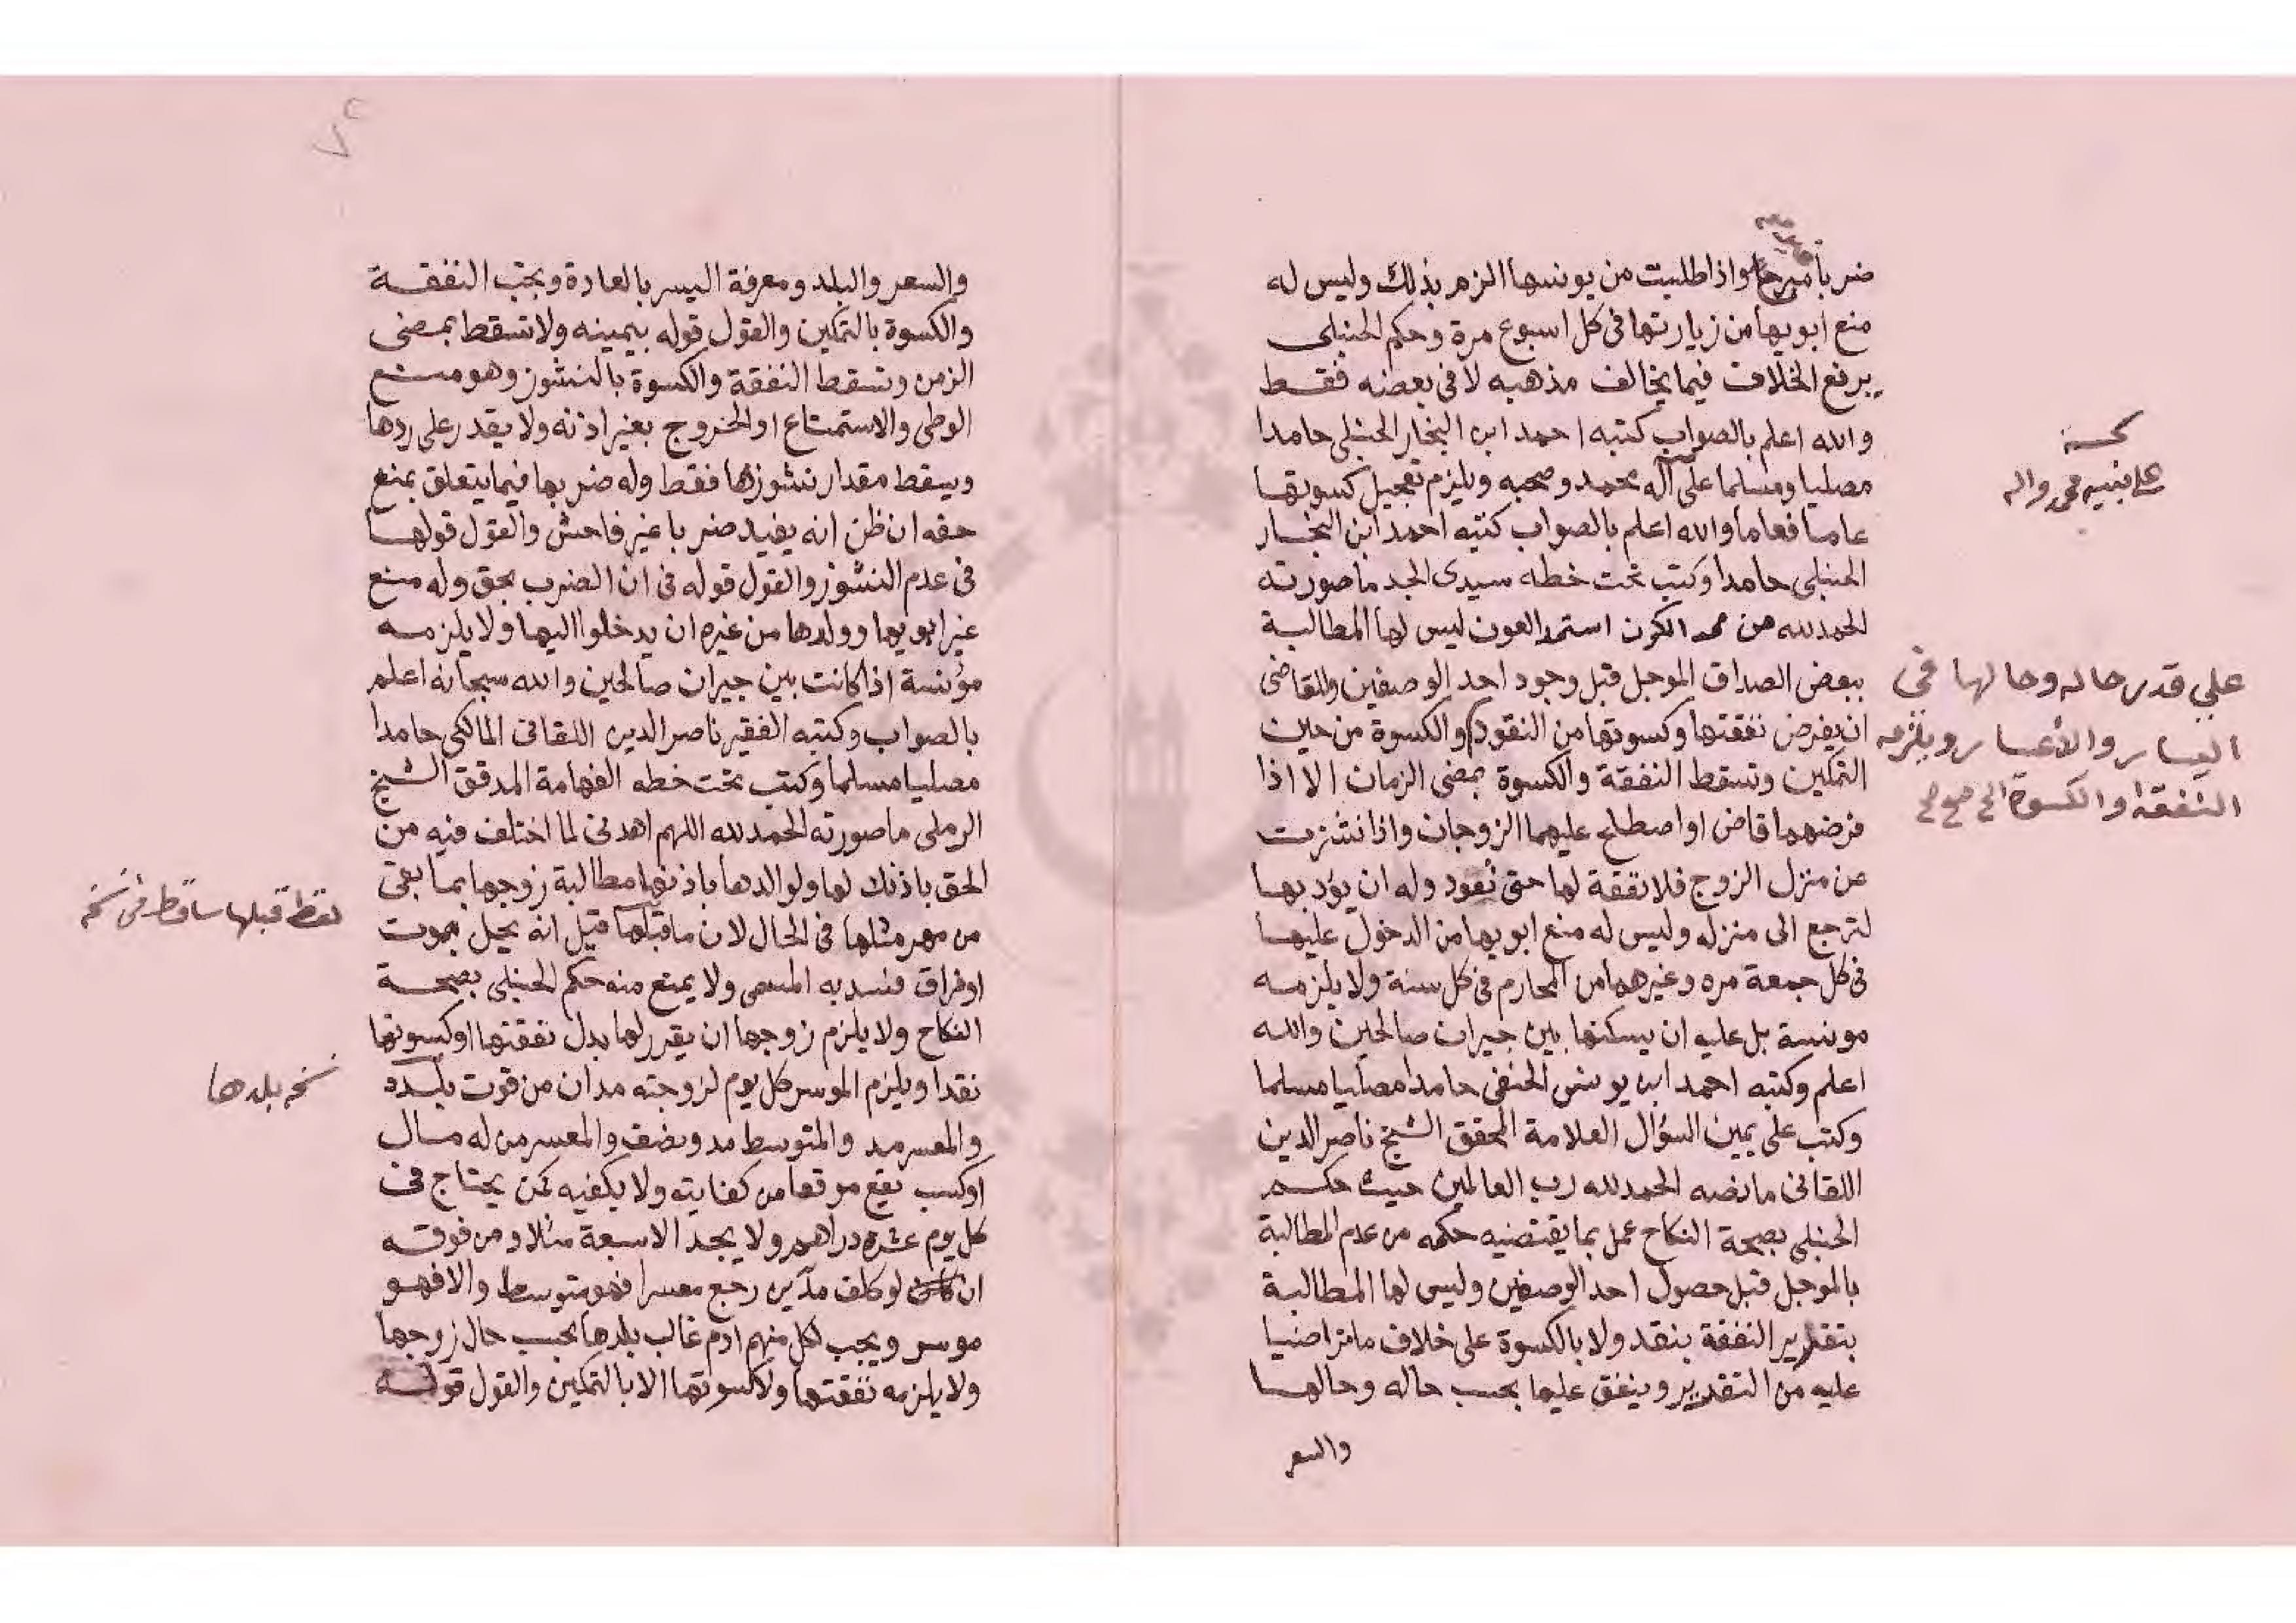 ضربا مبرحا واذا طلبت من يونسها الزم بذلك وليس له
منع ابويها من زيارتها فى كل اسبوع مرة وحكم الحنبلى
يرفع الخلاف فيما يخالف مذهبه لا فى بعضه فقط
والله اعلم بالصواب كتبه احمد ابن النجار الحنبلى حامدا
مصليا ومسلما على آله محمد وصحبه ويلزم تعجيل كسوتها
عاما فعاما والله اعلم بالصواب كتبه احمد ابن النجار
الحنبلى حامدا وكتب تحت خطه سيدى الجد ما صورته
الحمد لله من ممد الكون استمد العون ليس لها المطالبة
ببعض الصداق الموجل قبل وجود احد الوصفين وللقاضى
ان يفرض نفقتها وكسوتها من النقود والكسوة من حين
التمكين وتسقط النفقة والكسوة بمضى الزمان الا اذا
فرضهما قاض او اصطلح عليهما الزوجان واذا نشزت
من منزل الزوج فلا نفقة لها حتى تعود وله ان يؤدبها
لترجع الى منزله وليس له منع ابويها من الدخول عليها
فى كل جمعة مره وغيرهما من المحارم فى كل سنة ولا يلزمه
مونسة بل عليه ان يسكنها بين جيران صالحين والله
اعلم وكتبه احمد ابن يونس الحنفى حامدا مصليا مسلما
وكتب على يمين السؤال العلامة المحقق الشيخ ناصر الدين
اللقانى ما نصه الحمد لله رب العالمين حيث حكم
الحنبلى بصحة النكاح عمل بما يقتضيه حكمه من عدم المطالبة
بالموجل قبل حصول احد الوصفين وليس لها المطالبة
بتقدير النفقة بنقد ولا بالكسوة على خلاف ما تراضيا
عليه من التقدير وينفق عليها بحسب حاله وحالها
والسعر
على نبيه محمد واله
على قدر حاله وحالها فى
اليسار والاعسار ويلزمه
النفقة والكسوة الخ صح صح
والسعر والبلد ومعرفة اليسر بالعادة وتجب النفقة
والكسوة بالتمكين والقول قوله بيمينه ولا تسقط بمضى
الزمن وتسقط النفقة والكسوة بالنشوز وهو منع
الوطى والاستمتاع او الخروج بغير اذنه ولا يقدر على ردها
ويسقط مقدار نشوزها فقط وله ضربها فيما يتعلق بمنع
حقه ان ظن انه يفيد ضربا غير فاحش والقول قولها
فى عدم النشوز والقول قوله فى ان الضرب بحق وله منع
غير ابويها وولدها من غيره ان يدخلوا اليها ولا يلزمه
مؤنسة اذا كانت بين جيران صالحين والله سبحانه اعلم
بالصواب وكتبه الفقير ناصر الدين اللقانى المالكى حامدا
مصليا مسلما وكتب تحت خطه الفهامة المدقق الشيخ
الرملى ما صورته الحمد لله اللهم اهدنى لما اختلف فيه من
الحق باذنك لها ولوالدها باذنها مطالبة زوجها بما بقى
من مهر مثلها فى الحال لان ما قبلها قيل انه يحل بموت
او فراق فسد به المسمى ولا يمنع منه حكم الحنبلى بصحة
النكاح ولا يلزم زوجها ان يقرر لها بدل نفقتها او كسوتها
نقدا ويلزم الموسر كل يوم لزوجته مدان من قوت بلده
والمعسر مد والمتوسط مد ونصف والمعسر من له مال
او كسب يقع موقعا من كفايته ولا يكفيه كمن يحتاج فى
كل يوم عشره دراهم ولا يجد الا سبعة مثلا ومن فوقه
ان كان لو كلف مدين رجع معسرا فهو متوسط والا فهو
موسر ويجب لكل منهم ادم غالب بلدها بحسب حال زوجها
ولا يلزمه نفقتها ولا كسوتها الا بالتمكين والقول قوله
قبلها ساقط من نسخه
نسخه بلدها